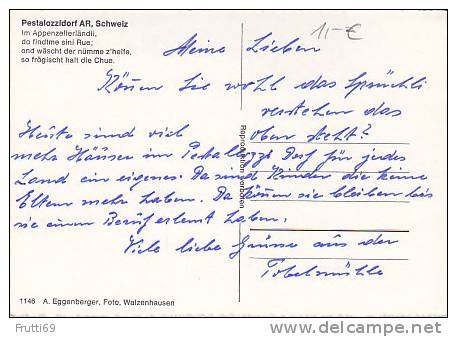 Pestalozzidorf AR, Schweiz
Im Appenzellerländli,
do findtme sini Rue;
ond wäscht der nümme z'helfe,
so frögischt halt die Chue.
1,-€
Meine Lieben
Können Sie wohl das Sprüchli
verstehen das
oben steht?
Heute sind viel
mehr Häuser im Pestalozzi Dorf für jedes
Land ein eigenes. Da sind Kinder die keine
Eltern mehr haben. Da können sie bleiben bis
sie einen Beruf erlernt haben.
Viele liebe Grüsse aus der
Tobelmühle
Reproduktion verboten
1146 A. Eggenberger, Foto, Walzenhausen
Frutti69
http://www.delcampe.net